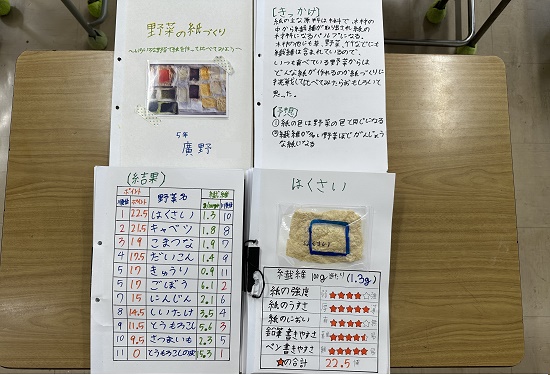 野菜の紙づくり
～いろいろな野菜で紙を作って比べてみよう～
5年
廣野
[きっかけ]
紙の主な原料は木材で、木材の
中から繊維が取り出され紙の
木の他にも麦、野菜、竹などにも
繊維は含まれているので、
いつも食べている野菜からは
どんな紙が作れるのか紙づくりに
挑戦をして比べてみたらおもしろいと
思った。
[予想]
①紙の色は野菜の色で同じになる
②繊維が多い野菜ほどがんじょう
な紙になる
(結果)
ポイント順位 ポイント 野菜名 繊維g/100g 繊維順位
1 22.5 はくさい 1.3 10
2 21.5 キャベツ 1.8 8
3 19 こまつな 1.9 7
4 17.5 だいこん 1.4 9
5 17 きゅうり 0.9 11
5 17 ごぼう 6.1 2
7 15 にんじん 2.1 6
8 14.5 しいたけ 3.5 4
9 11.5 とうもろこし 5.6 3
10 9.5 さつまいも 2.3 5
11 0 とうもろこしの皮 5.3 1
はくさい
はくさい
繊維 100g当たり (1.3g)
紙の強度 ★★★★☆
紙のうすさ ★★★★
紙のにおい ★★★★
鉛筆 書きやすさ ★★★★
ペン 書きやすさ ★★★★
★の合計 22.5